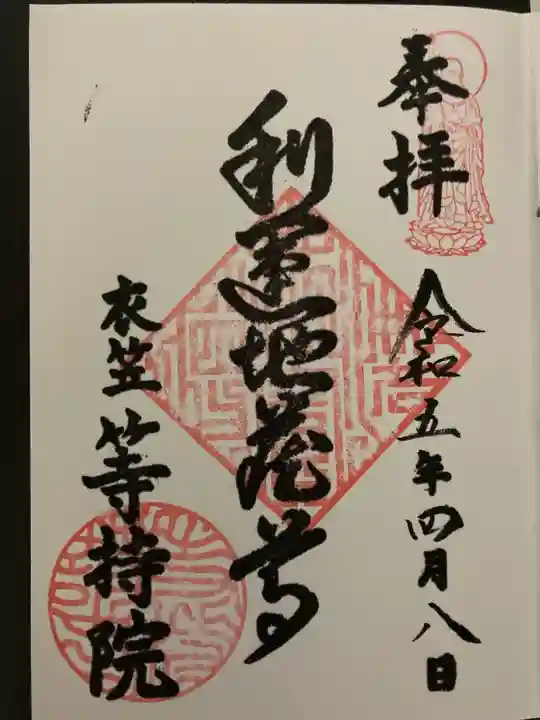 奉拝
令和五年四月八日
利運地蔵尊
衣笠等持院